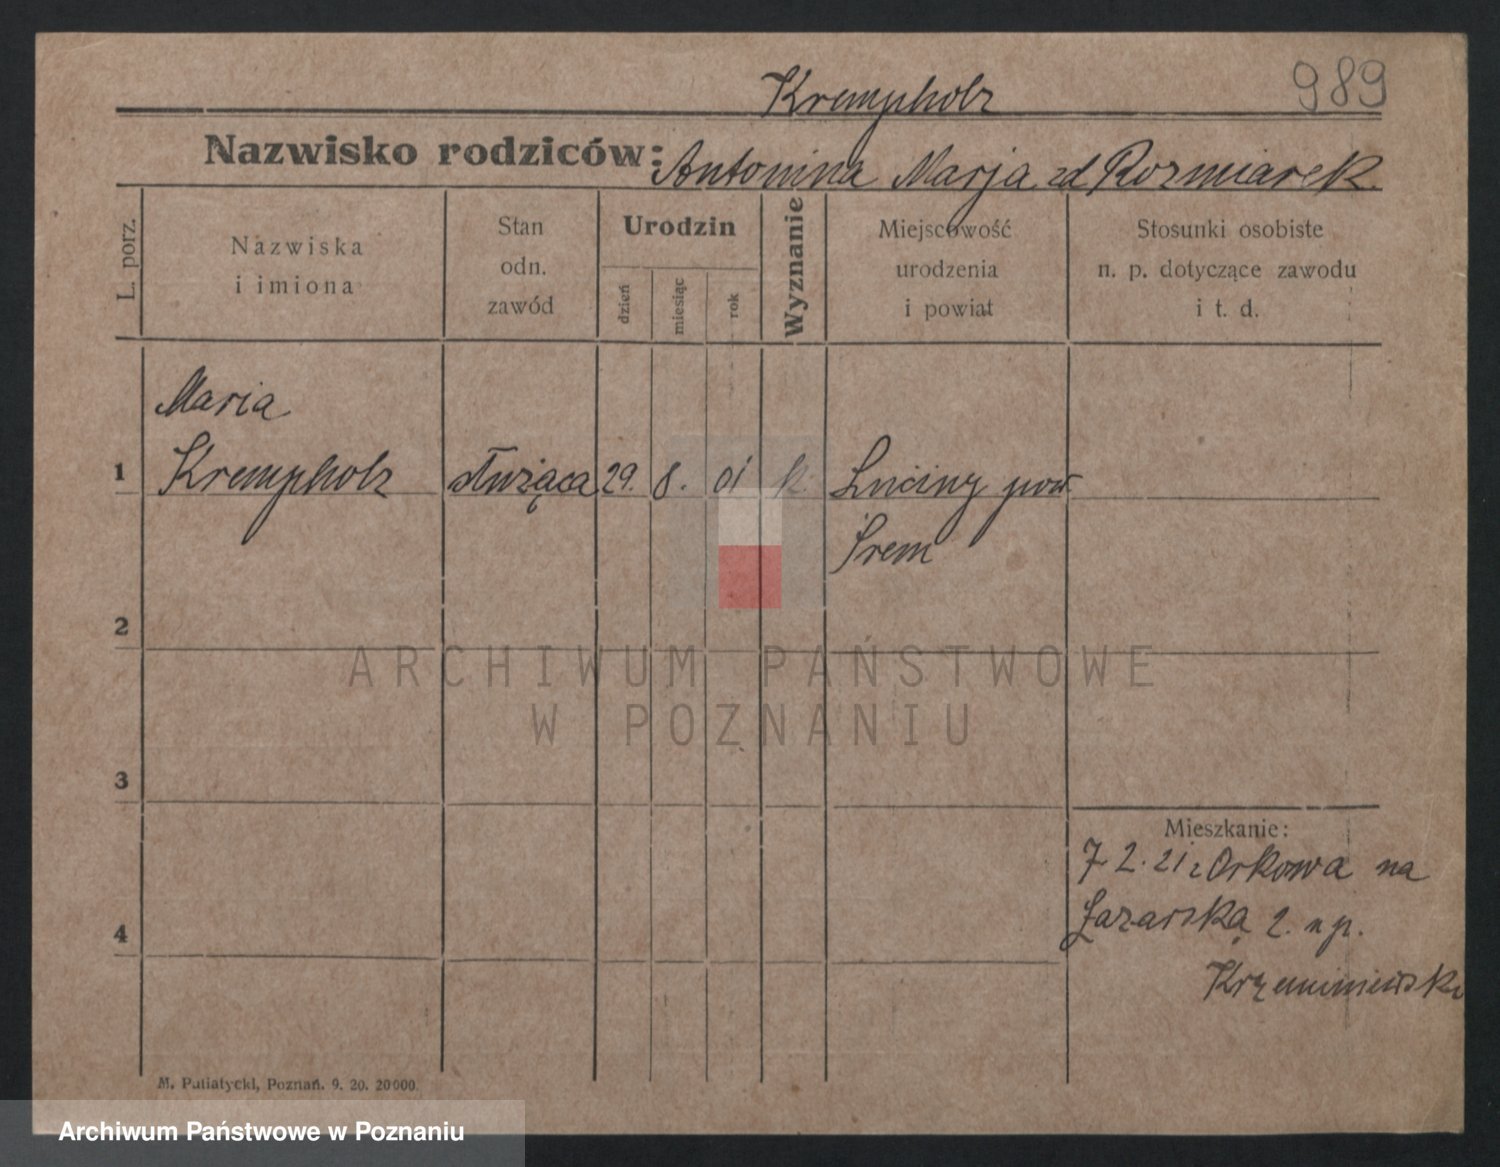 989
Krempholz
Nazwisko rodziców: Antonina Marja zd Rozmiarek.
L. porz.
Nazwiska
i imiona
Stan
odn.
zawód
Urodzin
dzień
miesiąc
rok
Wyznanie
Miejscowość
urodzenia
i powiat
Stosunki osobiste
n. p. dotyczące zawodu
i t. d.
Maria
1 Krempholz służąca 29. 8. 01 k. Luciny pow
Śrem
2
3
4
Mieszkanie:
7 2. 21 z Orkowa na
Łazarska 2. u p.
Krzeminiewski
M. Putiatycki, Poznań. 9. 20. 20000.
ARCHIWUM PAŃSTWOWE
W POZNANIU
Archiwum Państwowe w Poznaniu